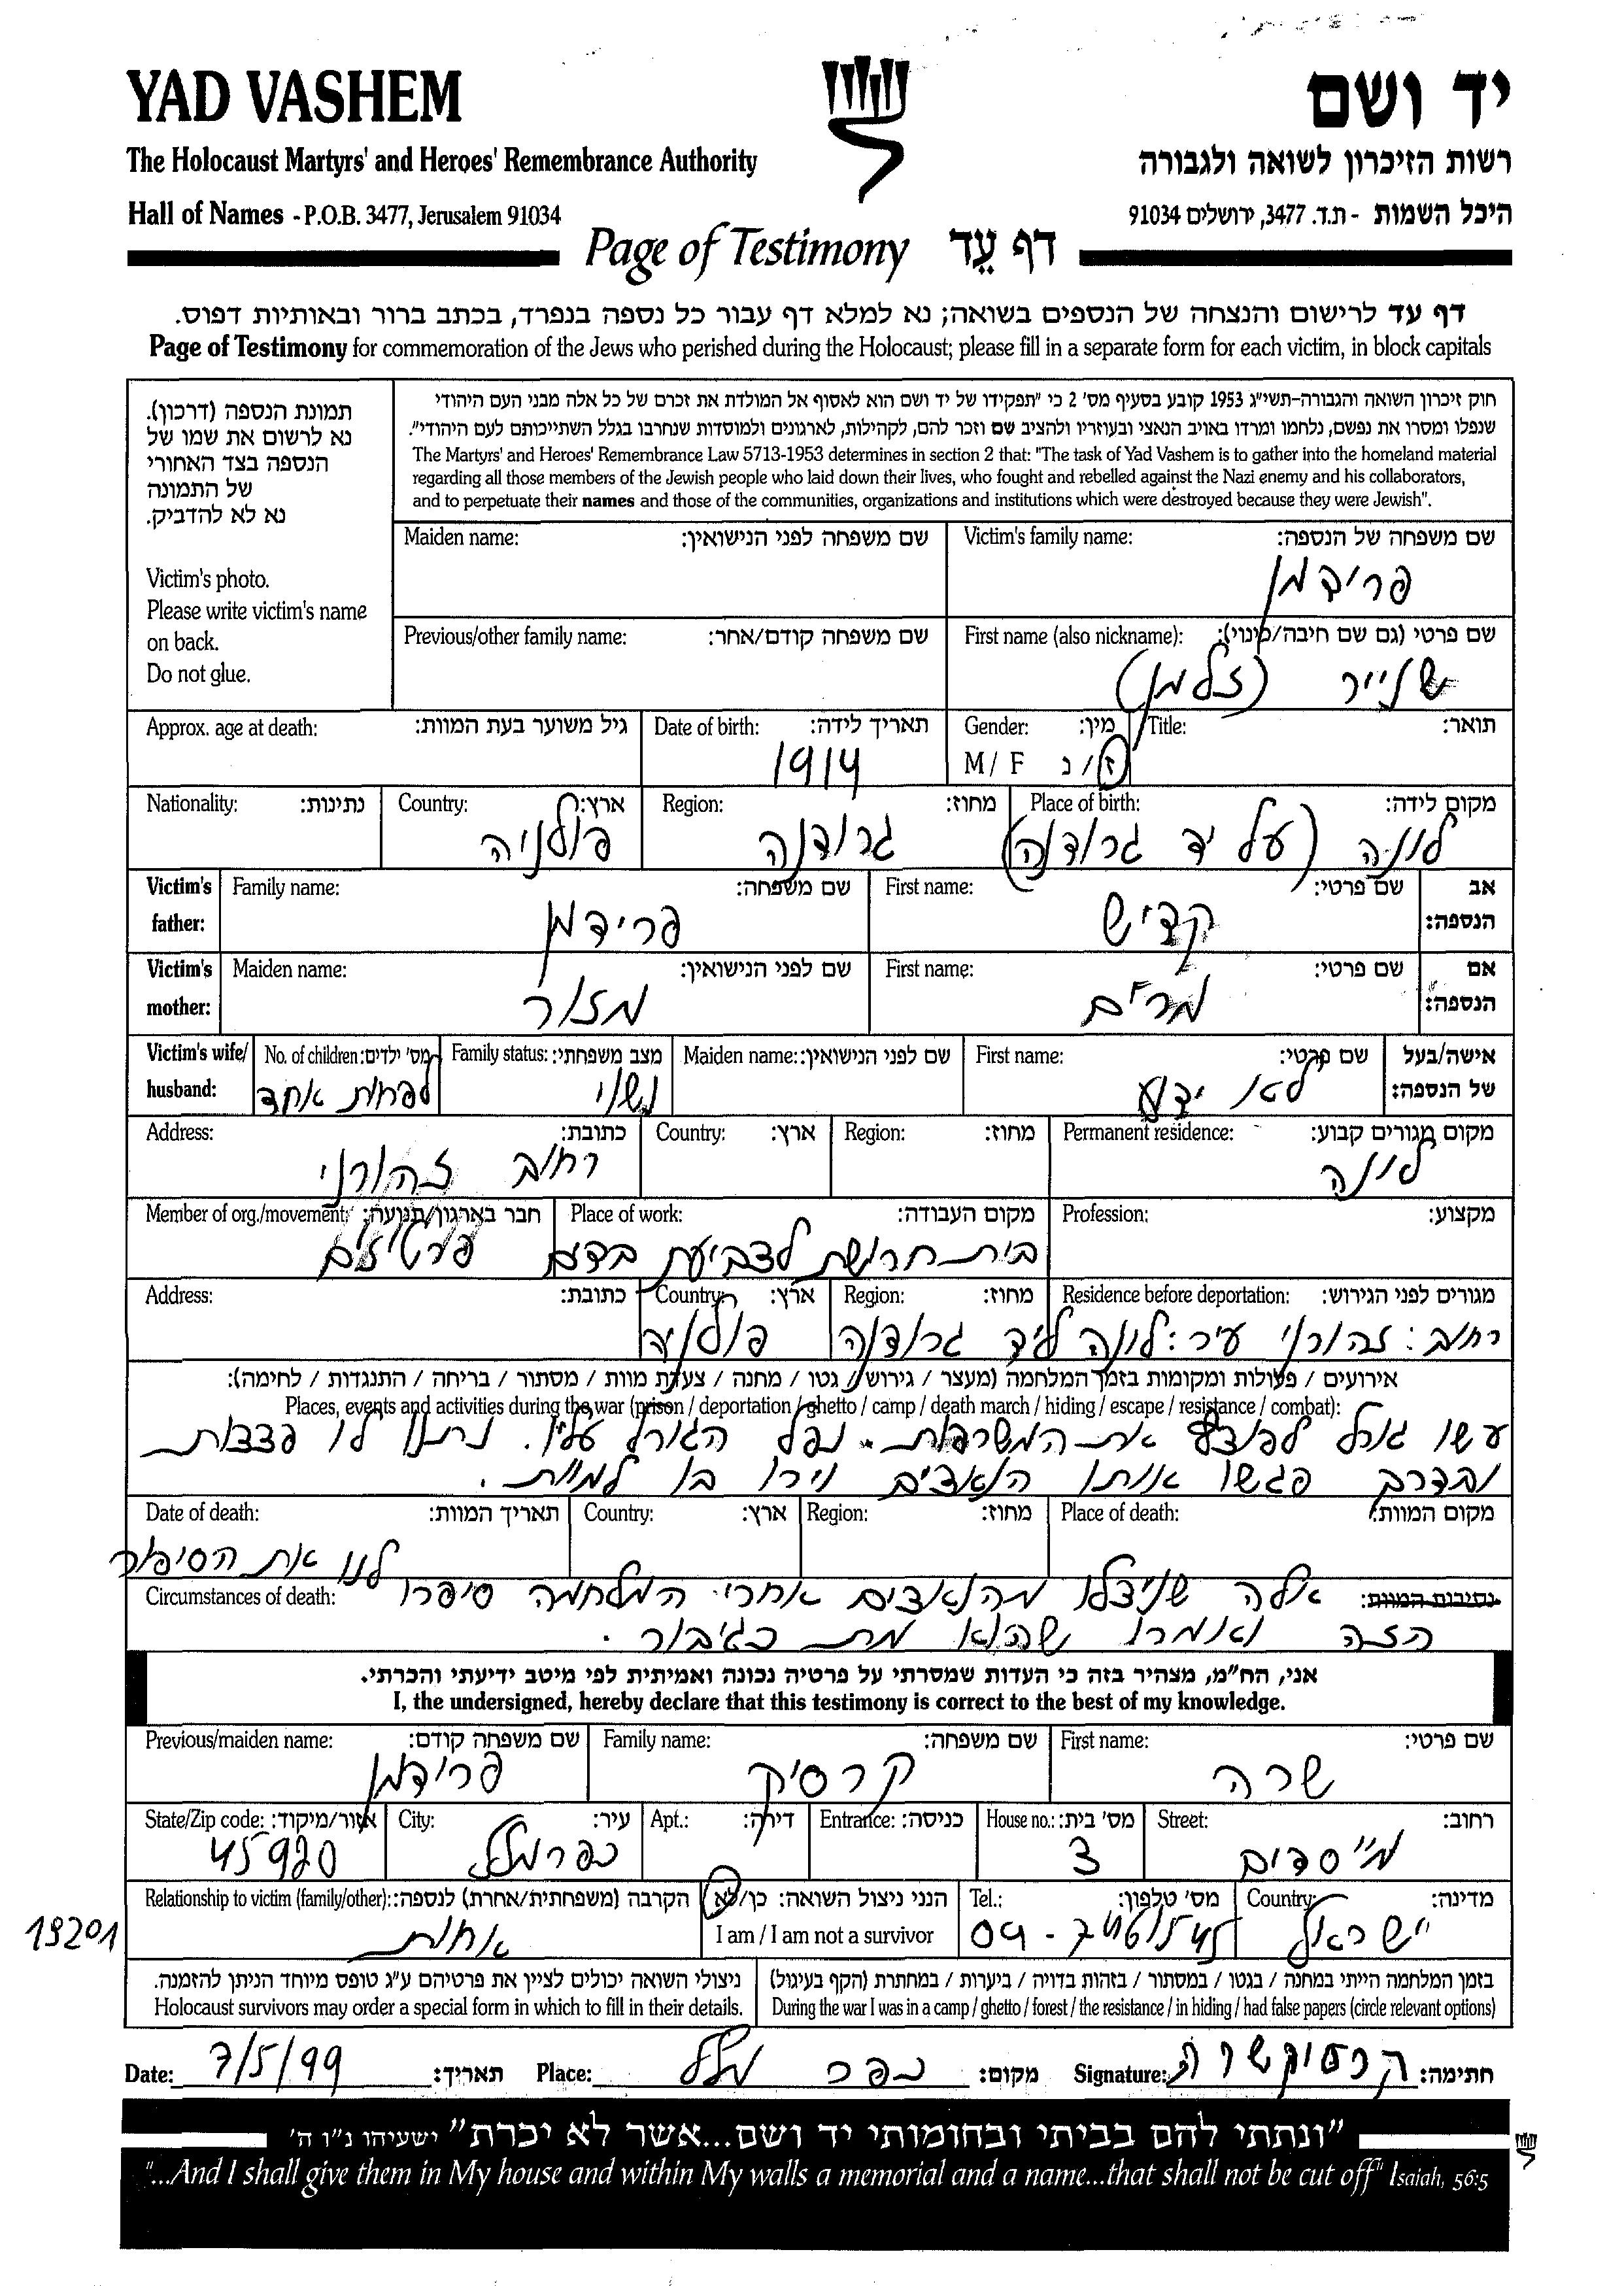 YAD VASHEM
יד ושם
The Holocaust Martyrs' and Heroes' Remembrance Authority
רשות הזיכרון לשואה ולגבורה
Hall of Names - P.O.B. 3477, Jerusalem 91034
היכל השמות - ת.ד. 3477, ירושלים 91034
Page of Testimony דף עֵד
דף עד לרישום והנצחה של הנספים בשואה; נא למלא דף עבור כל נספה בנפרד, בכתב ברור ובאותיות דפוס.
Page of Testimony for commemoration of the Jews who perished during the Holocaust; please fill in a separate form for each victim, in block capitals
תמונת הנספה (דרכון).
נא לרשום את שמו של
הנספה בצד האחורי
של התמונה
נא לא להדביק.
Victim's photo.
Please write victim's name
on back.
Do not glue.
חוק זיכרון השואה והגבורה-תשי"ג 1953 קובע בסעיף מס' 2 כי "תפקידו של יד ושם הוא לאסוף אל המולדת את זכרם של כל אלה מבני העם היהודי
שנפלו ומסרו את נפשם, נלחמו ומרדו באויב הנאצי ובעוזריו ולהציב שם וזכר להם, לקהילות, לארגונים ולמוסדות שנחרבו בגלל השתייכותם לעם היהודי".
The Martyrs' and Heroes' Remembrance Law 5713-1953 determines in section 2 that: "The task of Yad Vashem is to gather into the homeland material
regarding all those members of the Jewish people who laid down their lives, who fought and rebelled against the Nazi enemy and his collaborators,
and to perpetuate their names and those of the communities, organizations and institutions which were destroyed because they were Jewish".
Victim's family name: שם משפחה של הנספה:
פרידמן
Maiden name: שם משפחה לפני הנישואין:
First name (also nickname): שם פרטי (גם שם חיבה/כינוי):
שנייר (זלמן)
Previous/other family name: שם משפחה קודם/אחר:
Title: תואר:
Gender: מין:
M / F ז / נ
Date of birth: תאריך לידה:
1914
Approx. age at death: גיל משוער בעת המוות:
Place of birth: מקום לידה:
לונה (על יד גרודנה)
Region: מחוז:
גרודנה
Country: ארץ:
פולניה
Nationality: נתינות:
Victim's father: אב הנספה:
First name: שם פרטי:
קדיש
Family name: שם משפחה:
פרידמן
Victim's mother: אם הנספה:
First name: שם פרטי:
מרים
Maiden name: שם לפני הנישואין:
מזור
Victim's wife/ husband: אישה/בעל של הנספה:
First name: שם פרטי:
לא ידוע
Maiden name: שם לפני הנישואין:
Family status: מצב משפחתי:
נשוי
No. of children: מס' ילדים:
לפחות אחד
Permanent residence: מקום מגורים קבוע:
לונה
Region: מחוז:
Country: ארץ:
Address: כתובת:
רחוב זהורני
Profession: מקצוע:
Place of work: מקום העבודה:
בית חרושת לצביעת בדים
Member of org./movement: חבר בארגון/תנועה:
פרטיזנים
Residence before deportation: מגורים לפני הגירוש:
רחוב: זהורני עיר: לונה ליד גרודנה
Region: מחוז:
Country: ארץ:
פולניה
Address: כתובת:
אירועים / פעולות ומקומות בזמן המלחמה (מעצר / גירוש / גטו / מחנה / צעדת מוות / מסתור / בריחה / התנגדות / לחימה):
Places, events and activities during the war (prison / deportation / ghetto / camp / death march / hiding / escape / resistance / combat):
עשו גורל לפוצץ את המשרפות. נפל הגורל עליו. נתנו לו פצצות
ובדרך פגשו אותו הנאצים וירו בו למוות.
Place of death: מקום המוות:
Region: מחוז:
Country: ארץ:
Date of death: תאריך המוות:
Circumstances of death: נסיבות המוות:
אלה שניצלו מהנאצים אחרי המלחמה סיפרו לנו את הסיפור
הזה ואומרו שהוא מת כגיבור.
אני, הח"מ, מצהיר בזה כי העדות שמסרתי על פרטיה נכונה ואמיתית לפי מיטב ידיעתי והכרתי.
I, the undersigned, hereby declare that this testimony is correct to the best of my knowledge.
First name: שם פרטי:
שרה
Family name: שם משפחה:
קרסיק
Previous/maiden name: שם משפחה קודם:
פרידמן
Street: רחוב:
מייסדים
House no.: מס' בית:
3
Entrance: כניסה:
Apt.: דירה:
City: עיר:
כפר מלל
State/Zip code: אזור/מיקוד:
45920
Country: מדינה:
ישראל
Tel.: מס' טלפון:
I am / I am not a survivor הנני ניצול השואה: כן/לא
Relationship to victim (family/other): הקרבה (משפחתית/אחרת) לנספה:
אחות
19201
בזמן המלחמה הייתי במחנה / בגטו / במסתור / בזהות בדויה / ביערות / במחתרת (הקף בעיגול)
During the war I was in a camp / ghetto / forest / the resistance / in hiding / had false papers (circle relevant options)
ניצולי השואה יכולים לציין את פרטיהם ע"ג טופס מיוחד הניתן להזמנה.
Holocaust survivors may order a special form in which to fill in their details.
Signature: קרסיק שרה חתימה:
Place: כפר מלל מקום:
Date: 7/5/99 תאריך:
"ונתתי להם בביתי ובחומותי יד ושם...אשר לא יכרת" ישעיהו נ"ו ה'
"...And I shall give them in My house and within My walls a memorial and a name...that shall not be cut off" Isaiah, 56:5